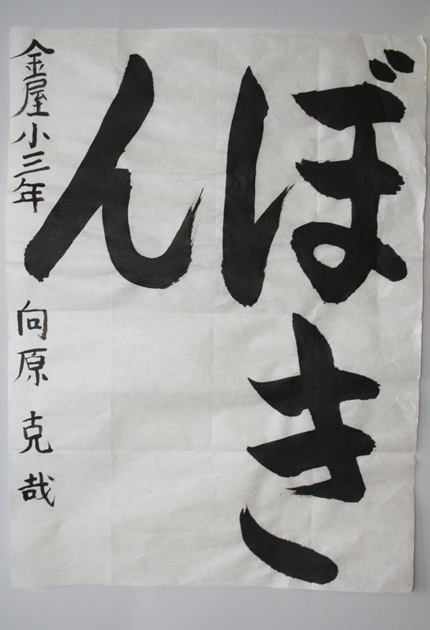 ぼき
ん
金屋小三年 向原克哉